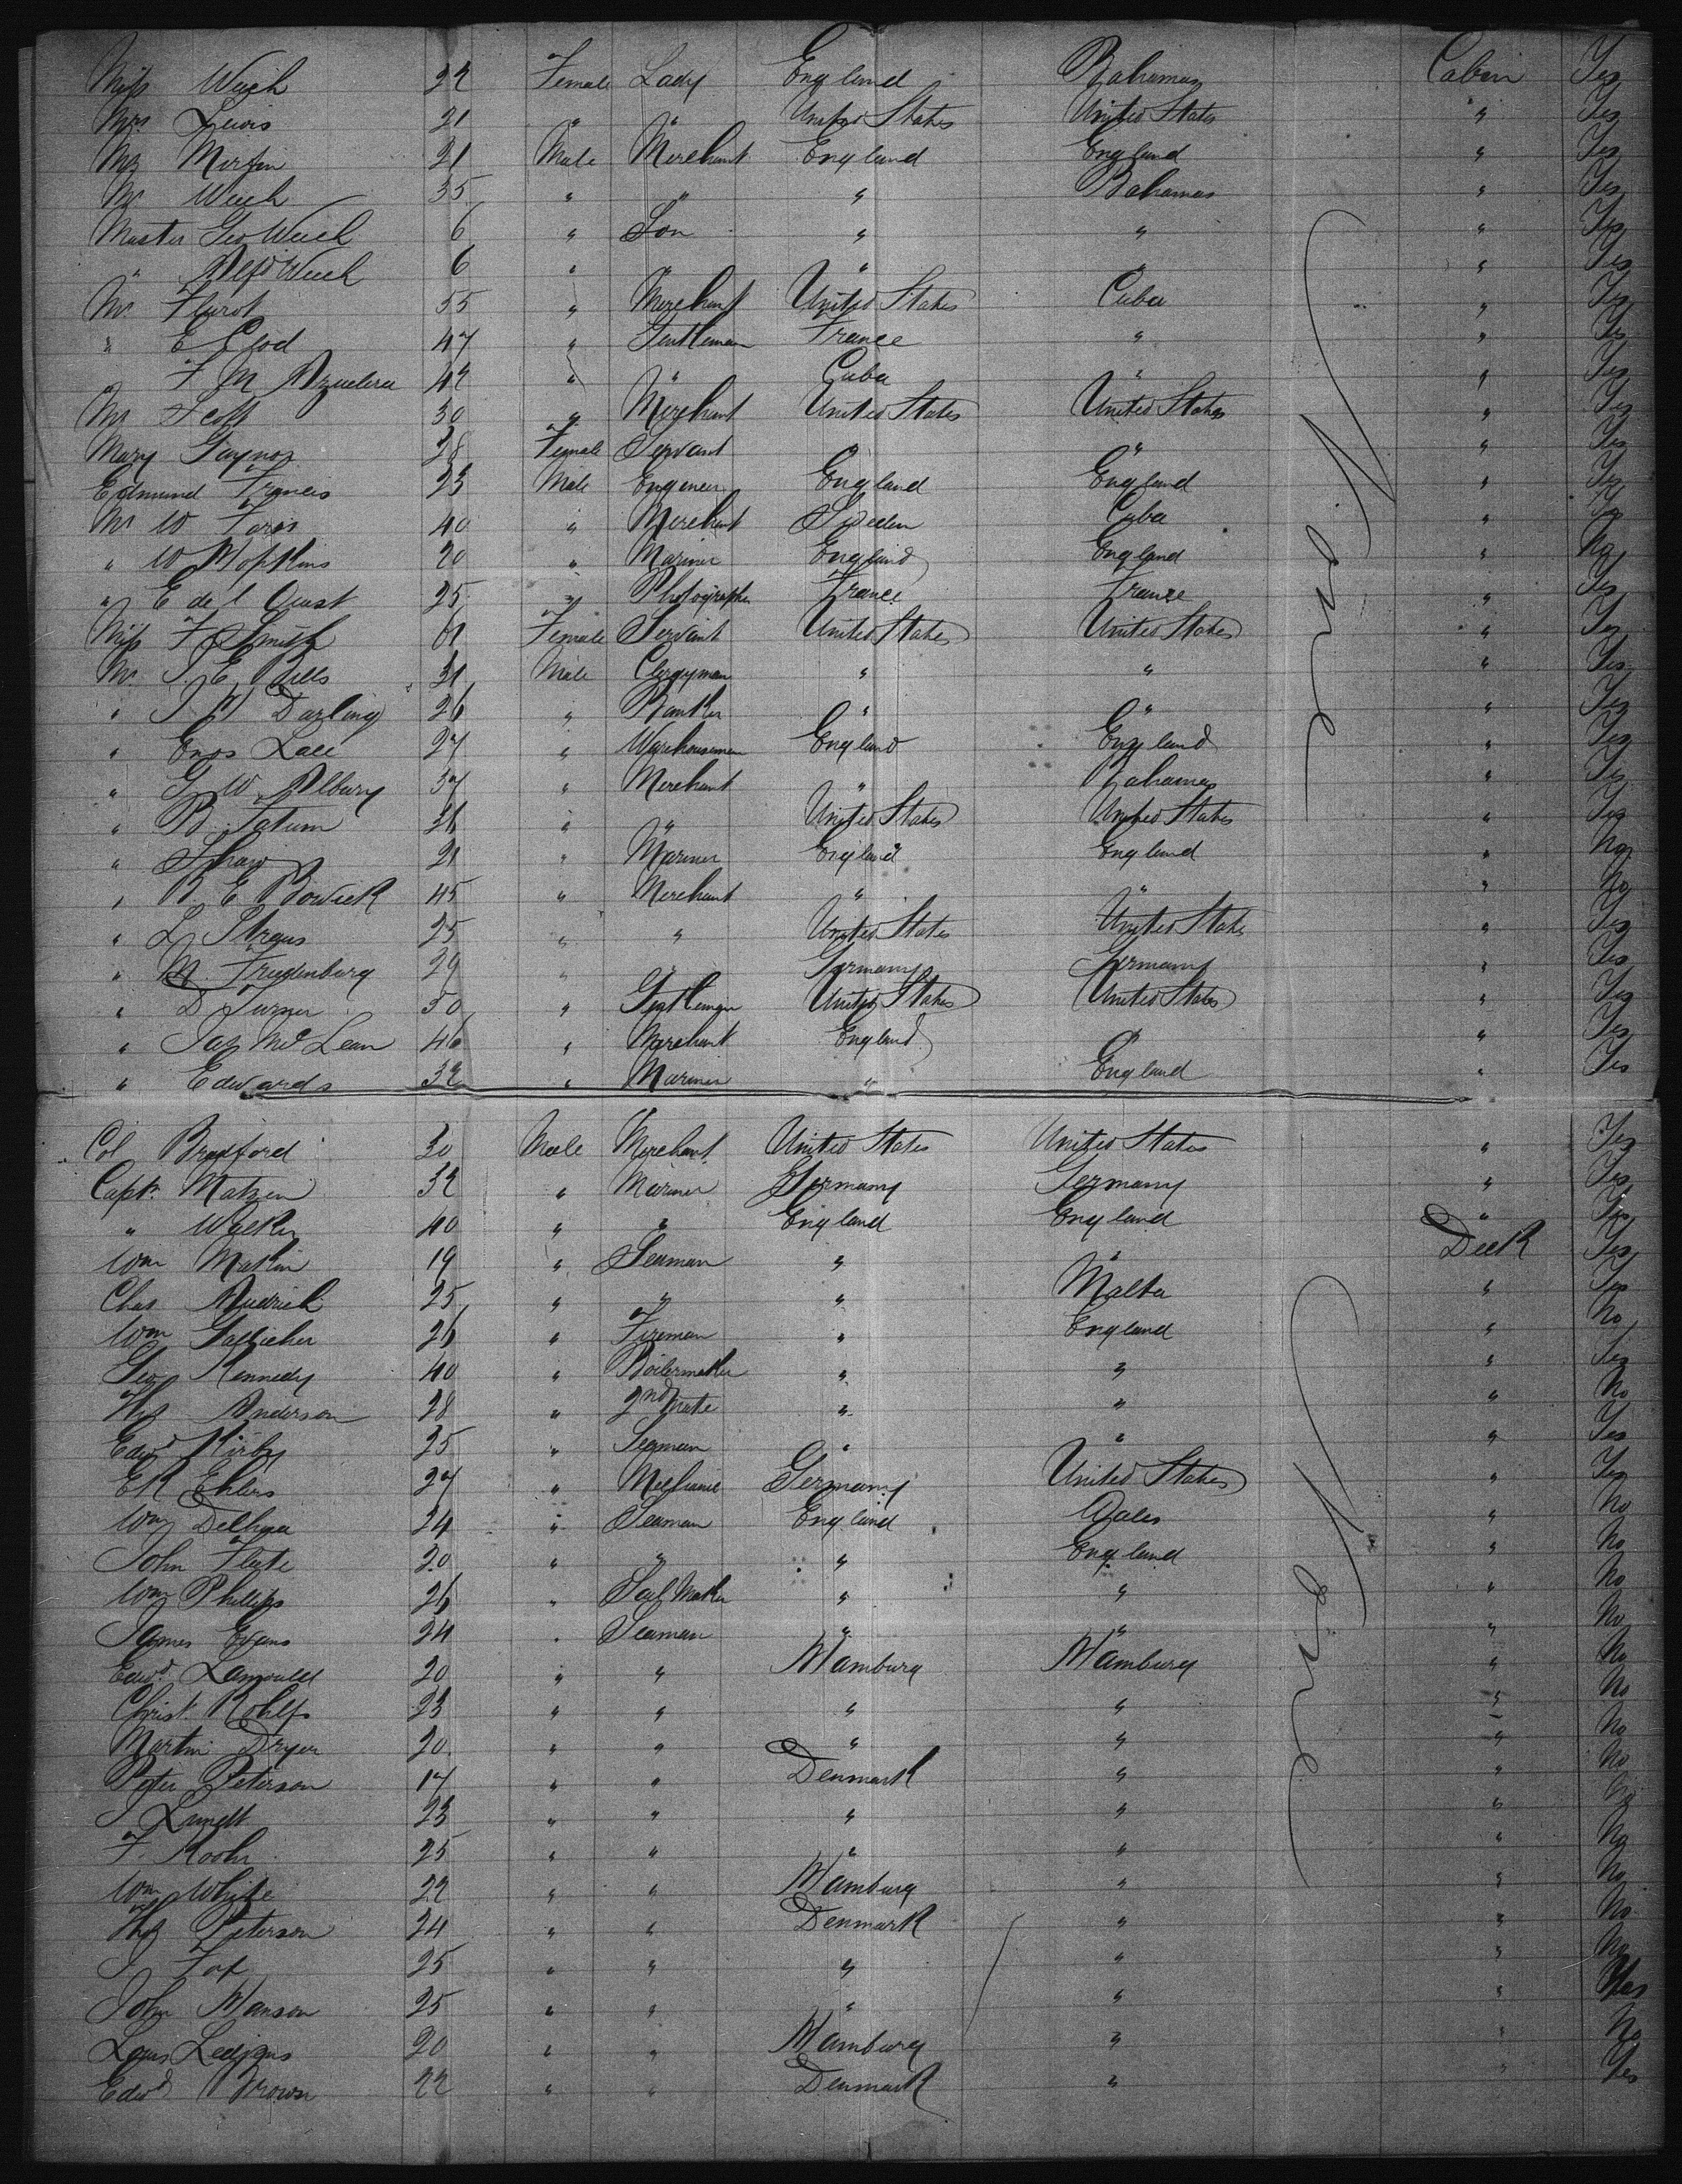 Miss Weech 22 Female Lady England Bahamas Cabin Yes
Mrs Lewis 21 " " United States United States " Yes
Mr 21 Male Merchant England England " Yes
Mr Weech 35 " " " Bahamas " Yes
Master Geo Weech 6 " Son " " " Yes
" Weech 6 " " " " " Yes
Mr 55 " Merchant United States Cuba " Yes
" E Clod 47 " Gentleman France " " Yes
" F M 42 " " Cuba " " Yes
Mr Scott 30 " Merchant United States United States " Yes
Mary Gaynor 28 Female Servant " " Yes
Edmund Francis 23 Male Engeneer England England " Yes
Mr W 40 " Merchant Sweden Cuba " Yes
" W Hopkins 20 " Mariner England England " No
" E de l Oust 25 " Photographer France France " Yes
Miss F Smith 61 Female Servant United States United States " Yes
Mr J. E. Bills 31 Male Clergyman " " " Yes
" J H Darling 26 " Banker " " " Yes
" Enos Lace 27 " Warehouseman England England " Yes
" G W Albury 37 " Merchant " Bahamas " Yes
" B. Tatum 36 " " United States United States " Yes
" Shaw 21 " Mariner England England " No
" R E Bowick 45 " Merchant " " " No
" L Straus 25 " " United States United States " Yes
" M. Fredenburg 29 " " Germany Germany " Yes
" D Turner 50 " Gentleman United States United States " Yes
" Jas McLean 46 " Merchant England " " Yes
" Edwards 32 " Mariner " England " Yes
Col Bradford 30 Male Merchant United States United States " Yes
Capt. Matzen 32 " Mariner Germany Germany " Yes
" Walker 40 " " England England " Yes
Wm Makin 19 " Seaman " " Deck Yes
Chas 25 " " " Malta " Yes
Wm Gallieher 26 " Fireman " England " No
Geo Kennedy 40 " Boilermaker " " " Yes
Anderson 28 " 2nd Mate " " " No
Edwd Kirby 25 " Seaman " " " Yes
E R Ehlers 27 " Mechanic Germany United States " Yes
Wm 24 " Seaman England Wales " No
John Flute 20 " " " England " No
Wm Phillips 26 " Sail Maker " " " No
James Evans 24 " Seaman " " " No
Edwd 20 " " Hamburg Hamburg " No
Christ. Rohlfs 23 " " " " " No
Martin Dryer 20 " " " " " No
Peter Peterson 17 " " Denmark " " No
J Lundt 23 " " " " " No
F. Koohn 25 " " " " " No
Wm White 22 " " Hamburg " " No
Peterson 24 " " Denmark " " No
J Fox 25 " " " " " No
John Hanson 25 " " " " " Yes
Louis 20 " " Hamburg " " No
Edwd Brown 22 " " Denmark " " Yes